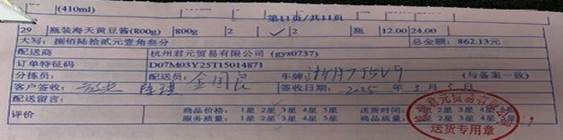 (410ml)
第11页/共11页
29 瓶装海天黄豆酱(800g) 800g 2 ✓ 2 瓶 12.00 24.00
大写: 捌佰陆拾贰元壹角叁分 总金额: 862.13元
配送商 杭州君元贸易有限公司 (gys0737)
订单特征码 D07M03Y25T15014871
分拣员: 配送员: 金国民 车牌: (与备案一致)
客户签收: 签收日期: 2025 年 3 月 5 日
配送留言:
评价 商品价格: 1星 2星 3星 4星 5星 送货时间: 1星 2星 3星 4星 5星
服务质量: 1星 2星 3星 4星 5星 商品质量: 1星 2星 3星 4星 5星
送货专用章